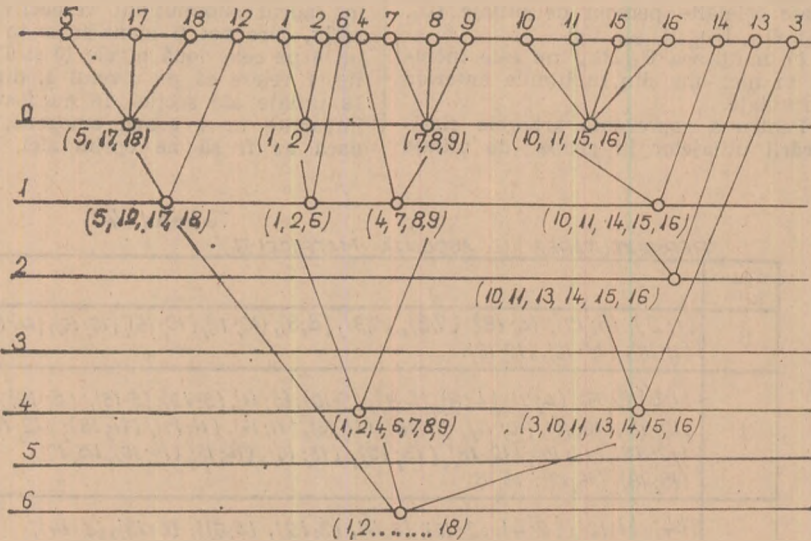 5 17 18 12 1 2 6 4 7 8 9 10 11 15 16 14 13 3
0
(5, 17, 18) (1, 2) (7,8,9) (10, 11, 15, 16)
1
(5, 12, 17, 18) (1, 2, 6) (4, 7, 8, 9) (10, 11, 14, 15, 16)
2
(10, 11, 13, 14, 15, 16)
3
4
(1, 2, 4, 6, 7, 8, 9) (3, 10, 11, 13, 14, 15, 16)
5
6
(1, 2........ 18)